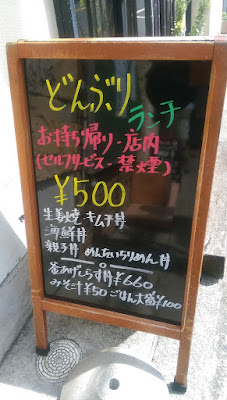 どんぶり
ランチ
お持ち帰り・店内
(セルフサービス・禁煙)
¥500
生姜焼 キムチ丼
海鮮丼
親子丼 めんたいちりめん丼
釜あげしらす丼¥660
みそ汁¥50 ごはん大盛¥100